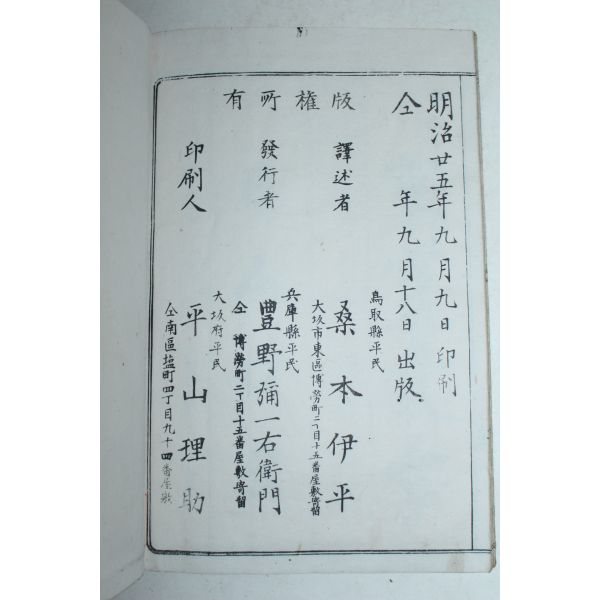 明治廿五年九月九日印刷
仝　　年九月十八日出版
版權所有
鳥取縣平民
譯述者　桑本伊平
大坂市東區博勞町二丁目十五番屋敷寄留
兵庫縣平民
發行者　豊野彌一右衛門
仝　博勞町二丁目十五番屋敷寄留
大坂府平民
印刷人　平山理助
仝南區塩町四丁目九十四番屋敷